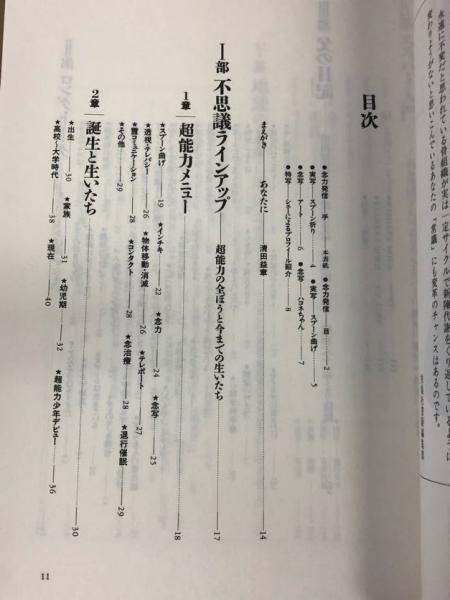 永遠に不変だと思われている骨組織が実は一定サイクルで新陳代謝をくり返しているように
変わりそうがないと思いこんでいるあなたの「常識」にも変革のチャンスはあるのです。
目次
★念力発信 手 本表紙 ★念力発信 目 2
★実写 スプーン折り 4 ★実写 スプーン曲げ 5
★念写 アート 6 ★念写 パコネちゃん 7
★特写 シミによるプロフィール紹介 8
まえがき あなたに 清田益章 14
Ⅰ部 不思議ラインアップ 超能力の全ぼうと今までの生いたち 17
1章 超能力メニュー 18
★スプーン曲げ 19 ★インチキ 22 ★念力 24 ★念写 25
★透視・テレパシー 26 ★物体移動・消滅 26 ★テレポート 27
★霊コミュニケーション 28 ★コンタクト 28 ★念治療 28 ★退行催眠 29
★その他 29
2章 誕生と生いたち 30
★出生 30 ★家族 31 ★幼児期 32 ★超能力少年デビュー 36
★高校〜大学時代 38 ★現在 40
11